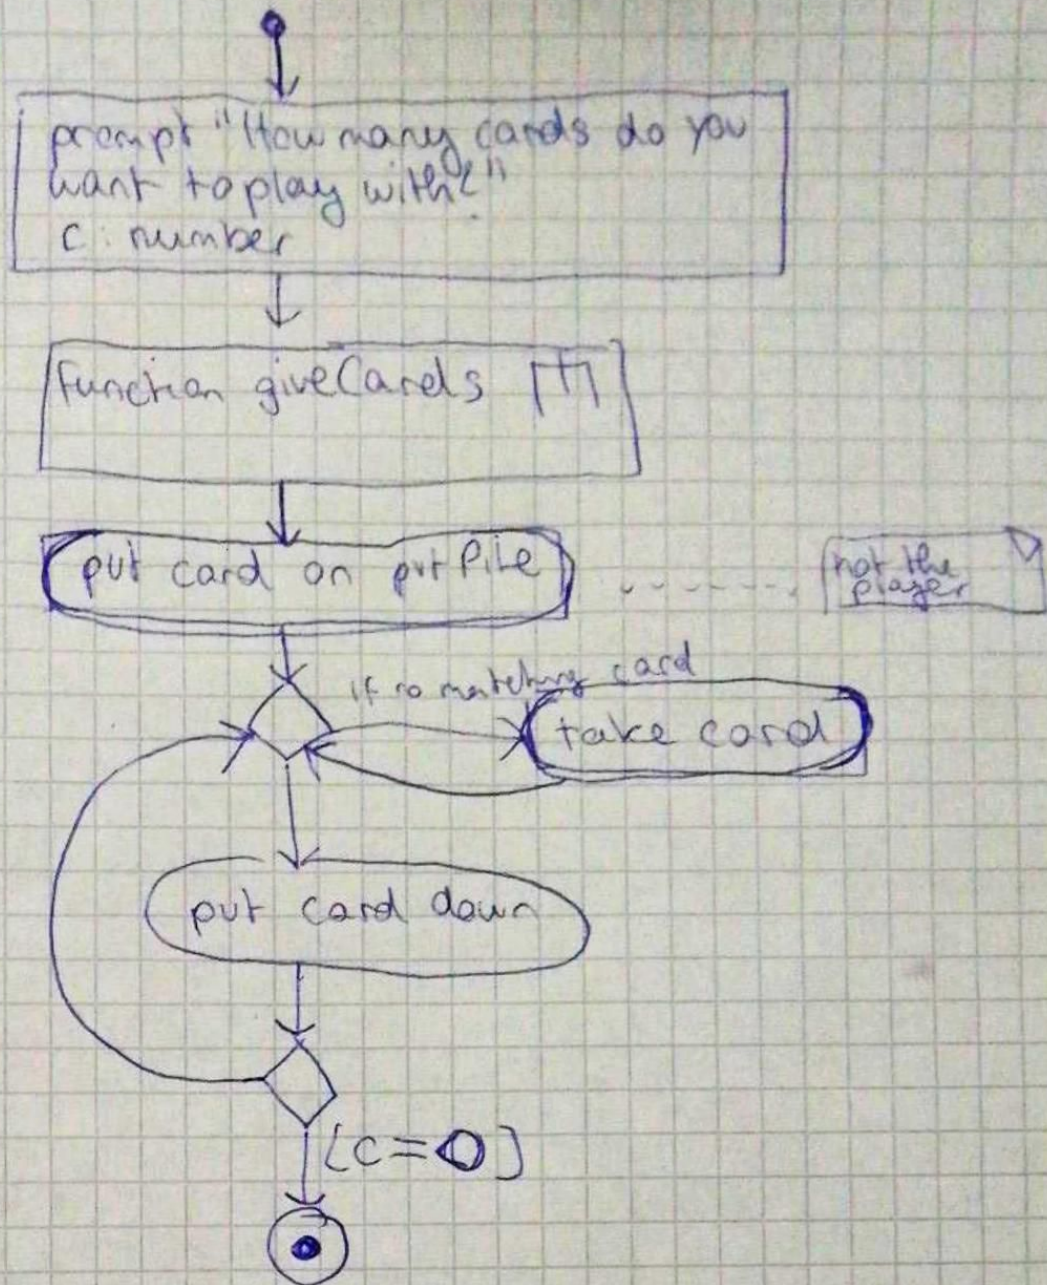 prompt "How many cards do you
want to play with?"
c: number
function giveCards
put card on putPile
not the
player
if no matching card
take card
put card down
[c=0]